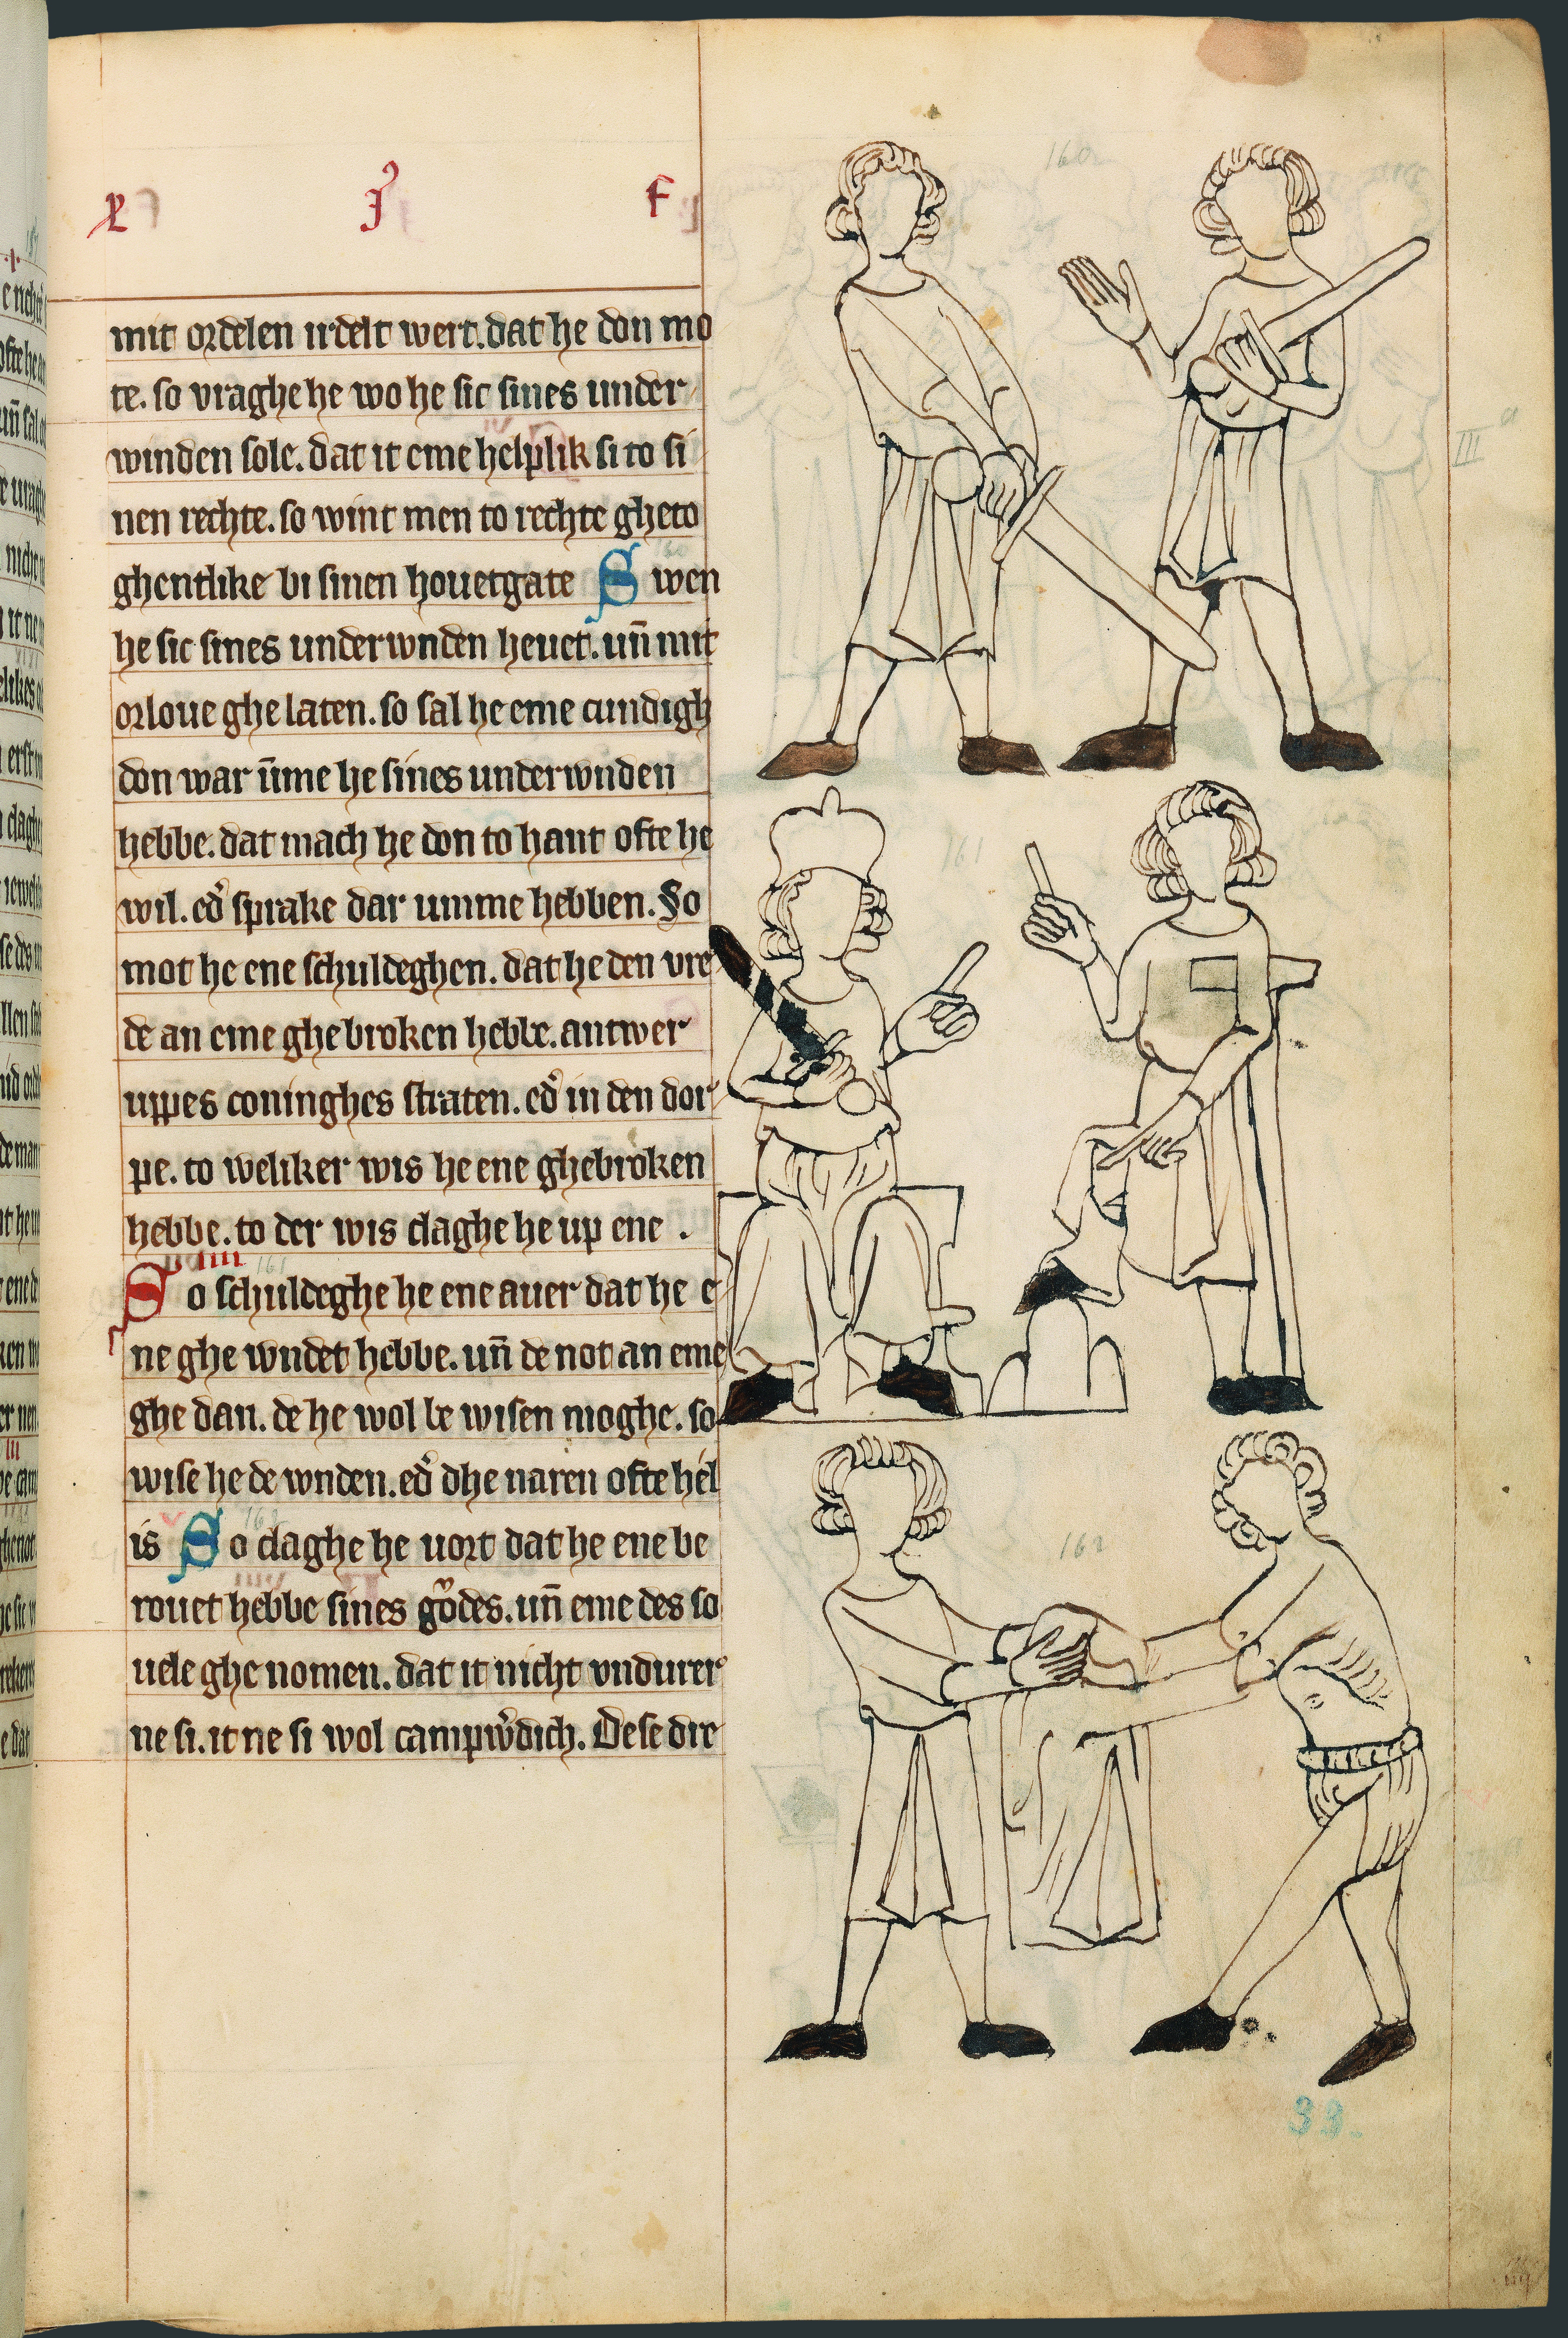 mit ordelen irdelt wert. dat he don mo
te. so vraghe he wo he sic sines under
winden sole. dat it eme helplik si to si
nen rechte. so wint men to rechte gheto
ghentlike bi sinen houetgate Swen
he sic sines underwnden heuet. un̄ mit
orloue ghe laten. so sal he eme cundigh
don war ūme he sines underwnden
hebbe. dat mach he don to hant ofte he
wil. ed̓ sprake dar umme hebben. So
mot he ene schuldeghen. dat he den vre
de an eme ghe broken hebbe. antwer
uppes coninghes straten. ed̓ in den dor
pe. to weliker wis he ene ghebroken
hebbe. to der wis claghe he up ene .
So schuldeghe he ene auer dat he e
ne ghe wndet hebbe. un̄ de not an eme
ghe dan. de he wol be wisen moghe. so
wise he de wnden. ed̓ dhe naren ofte hel
is So claghe he uort dat he ene be
rouet hebbe sines gůdes. un̄ eme des so
uele ghe nomen. dat it nicht vndurer
ne si. it ne si wol campẘdich. Dese dre
160
161
162
III a
33.